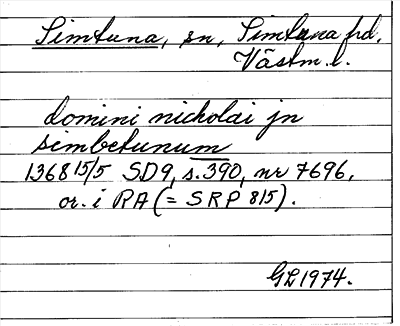 Simtuna, sn, Simtuna hd,
Västm. l.
domini nicholai jn
simbetunum
1368 15/5 SD9, s. 390, nr 7696,
or. i RA (= SRP 815).
GL 1974.